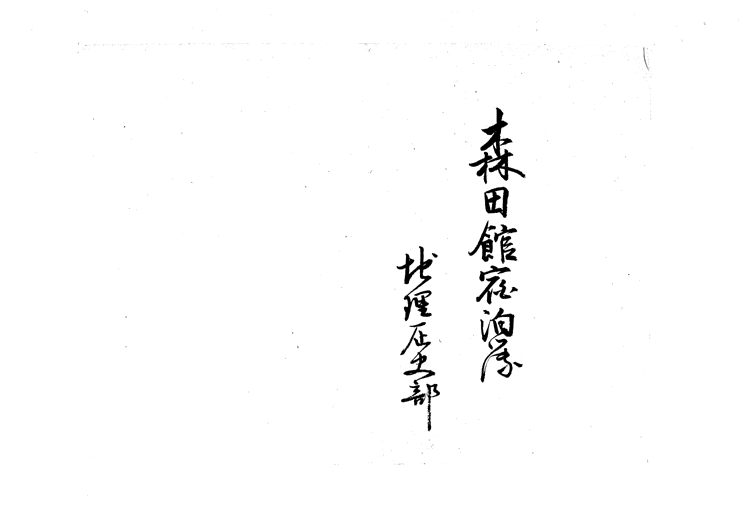 森田館宿泊所
地理歴史部